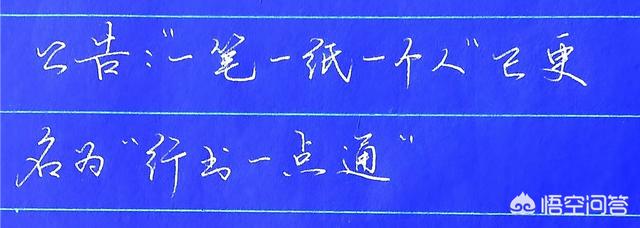 公告:“一笔一纸一个人”已更
名为“行书一点通”
悟空问答